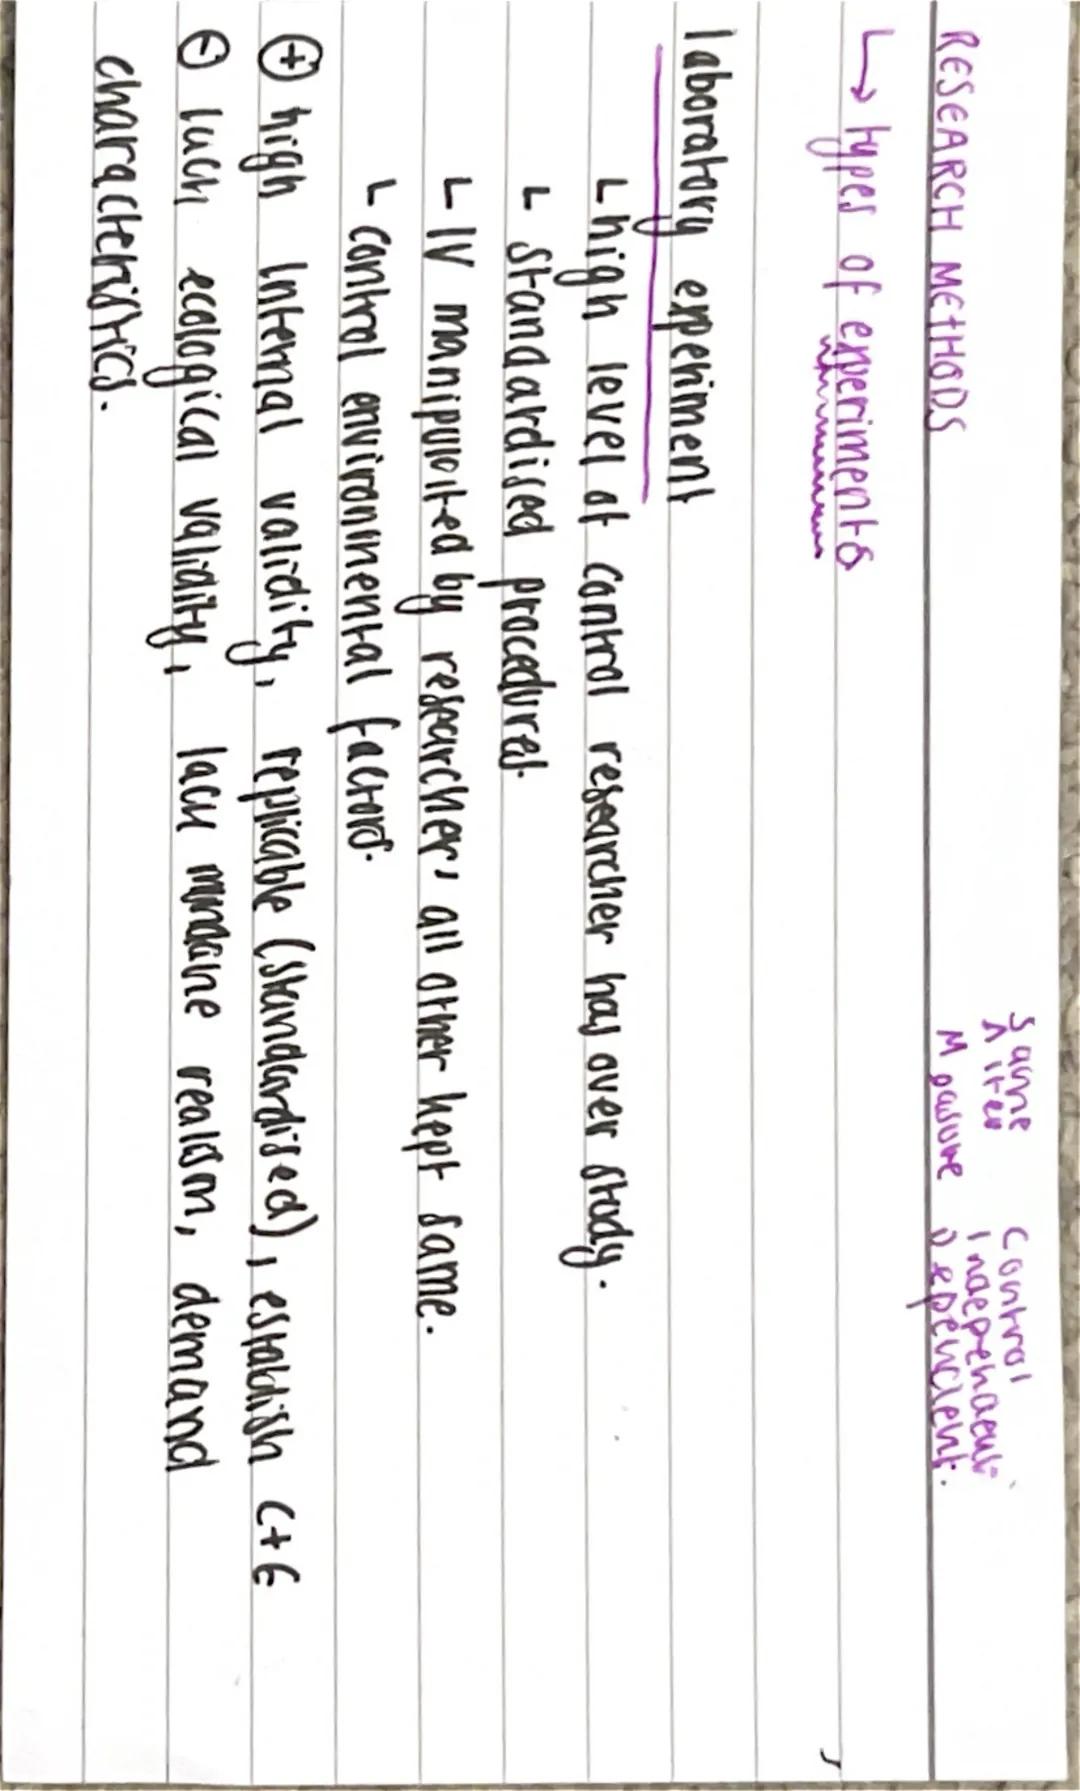 Same Control
Alter Independent
Measure Dependent.
RESEARCH METHODS
↳ types of experiments
laboratory experiment
└ high level of control researcher has over study.
└ standardised procedures.
└ IV manipulated by researcher, all other kept same.
└ control environmental factors.
⊕ high internal validity, replicable (standardised), establish C+E
⊖ luck ecological validity, lack mundane realism, demand
characteristics.